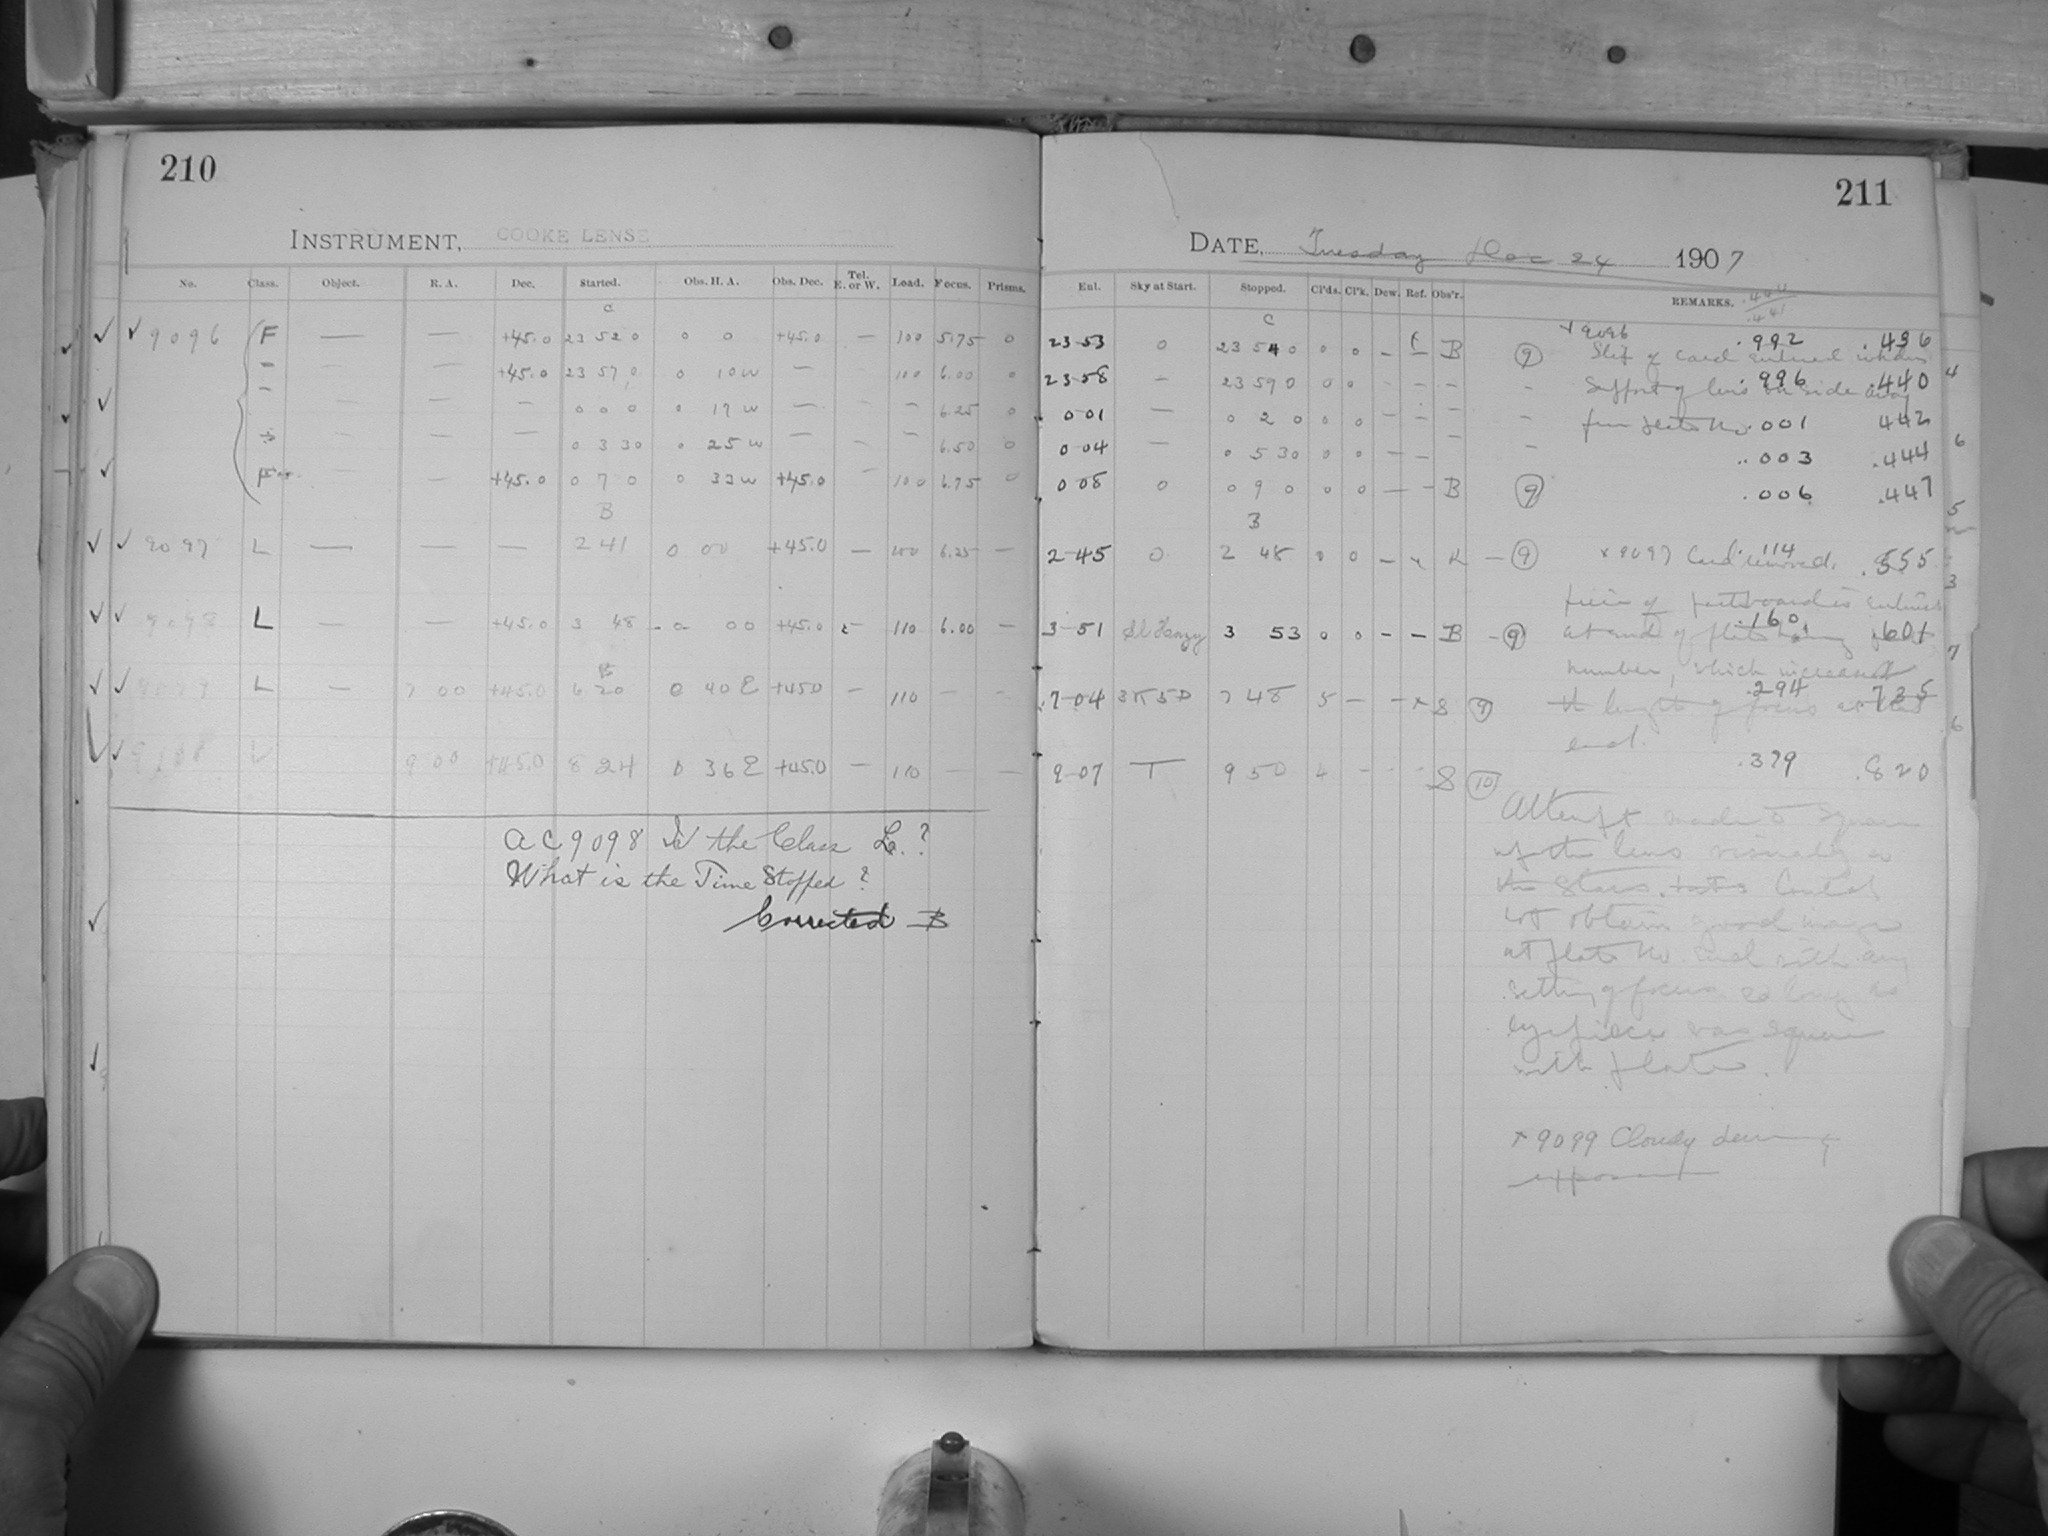 210
INSTRUMENT, COOKE LENSE
No. Class. Object. R. A. Dec. Started. Obs. H. A. Obs. Dec. Tel. E. or W. Load. Focus. Prisms.
C
9096 F — — +45.0 23 52 0 0 0 +45.0 — 100 5.75 0
— — — +45.0 23 57 0 0 10 W — 100 6.00 0
— — — — 0 0 0 0 17 W — — 6.25 0
— — — 0 3 30 0 25 W — — — 6.50 0
— +45.0 0 7 0 0 32 W +45.0 — 100 6.75 0
B
9097 L — — — 2 41 0 00 +45.0 — 100 6.25 —
9098 L — — +45.0 3 48 0 00 +45.0 110 6.00 —
B
9099 L — 7 00 +45.0 6 20 0 40 E +45.0 — 110 — —
L 9 00 +45.0 8 24 0 36 E +45.0 — 110 — —
AC 9098 Is the Class L.?
What is the Time Stopped?
Corrected B
211
DATE, Tuesday Dec 24 1907
Enl. Sky at Start. Stopped. Cl'ds. Cl'k. Dew. Ref. Obs'r. REMARKS. .444
.441
C
23-53 0 23 54 0 0 0 — B 9 × 9096 .992 .436
Slip of card entered
23-58 — 23 59 0 0 0 — — — — .996 .440
support of lens on side away
0-01 — 0 2 0 0 0 — — — — .001 .442
from plate No.
0-04 — 0 5 30 0 0 — — — — .003 .444
0 08 0 0 9 0 0 0 — — B 9 .006 .447
B
2-45 0 2 48 0 0 — × — 9 × 9097 Card removed. .114 .555
piece of pasteboard is
3-51 Sl Hazy 3 53 0 0 — — B — 9 .160 .601
at end of plate
number, which increased
7-04 7 48 5 — — × S 9 .294 .735
the length of focus at
end.
9-07 T 9 50 4 — — — S 10 .379 .820
Attempt made to square
up the lens visually
the stars. Could
not obtain good images
at plate No. end with any
setting of focus so long as
eyepiece was square
with plate.
× 9099 Cloudy during
exposure